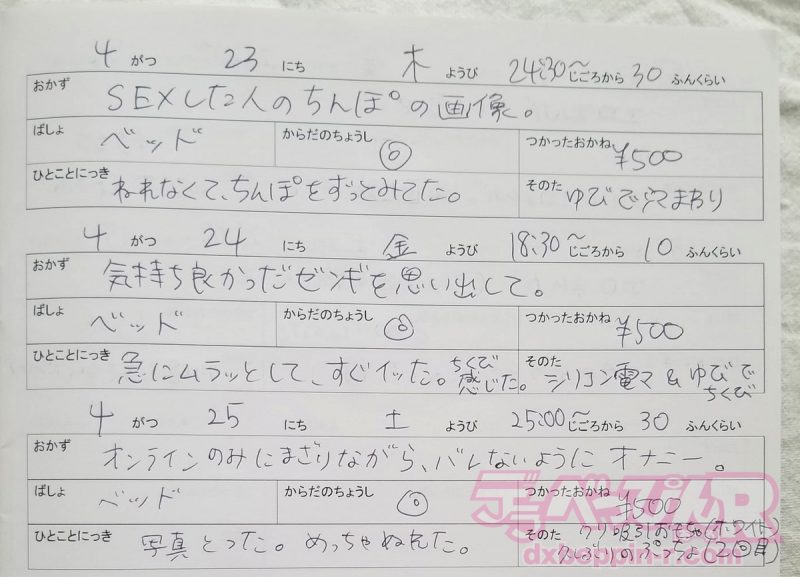 4 がつ 23 にち 木 ようび 24:30〜じごろから 30 ふんくらい
おかず SEXした人のちんぽの画像。
ばしょ ベッド からだのちょうし ◎ つかったおかね ¥500
ひとことにっき ねれなくて、ちんぽをずっとみてた。 そのた ゆびで穴まわり
4 がつ 24 にち 金 ようび 18:30〜じごろから 10 ふんくらい
おかず 気持ち良かっだゼンギを思い出して。
ばしょ ベッド からだのちょうし ◎ つかったおかね ¥500
ひとことにっき 急にムラッとして、すぐイッた。ちくび感じた。 そのた シリコン電マ & ゆびでちくび
4 がつ 25 にち 土 ようび 25:00〜じごろから 30 ふんくらい
おかず オンラインのみにまざりながら、バレないようにオナニー。
ばしょ ベッド からだのちょうし ◎ つかったおかね ¥500
ひとことにっき 写真とった。めっちゃぬれた。 そのた クリ吸引おもちゃ(ホワイト)
久しぶりのぷっちょ(2回目)
デラべっぴんR
dxbeppin-r.com